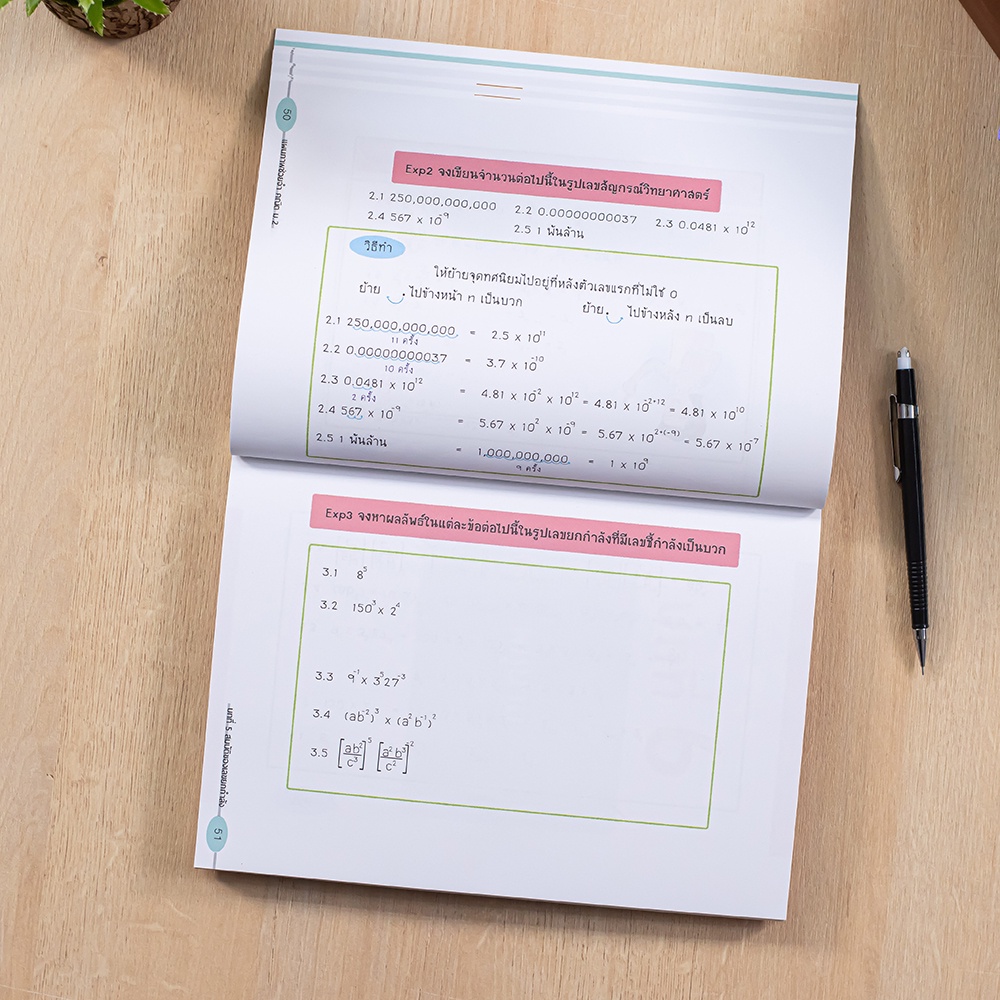 50
แผนภาพช่วยจำ คณิต ม.2
Exp2 จงเขียนจำนวนต่อไปนี้ในรูปเลขสัญกรณ์วิทยาศาสตร์
2.1 250,000,000,000 2.2 0.00000000037 2.3 0.0481 x 10¹²
2.4 567 x 10⁻⁹ 2.5 1 พันล้าน
วิธีทำ
ให้ย้ายจุดทศนิยมไปอยู่ที่หลังตัวเลขแรกที่ไม่ใช่ 0
ย้าย . ไปข้างหน้า n เป็นบวก ย้าย . ไปข้างหลัง n เป็นลบ
2.1 250,000,000,000 = 2.5 x 10¹¹
11 ครั้ง
2.2 0.00000000037 = 3.7 x 10⁻¹⁰
10 ครั้ง
2.3 0.0481 x 10¹² = 4.81 x 10⁻² x 10¹² = 4.81 x 10⁻²⁺¹² = 4.81 x 10¹⁰
2 ครั้ง
2.4 567 x 10⁻⁹ = 5.67 x 10² x 10⁻⁹ = 5.67 x 10²⁺⁽⁻⁹⁾ = 5.67 x 10⁻⁷
2.5 1 พันล้าน = 1,000,000,000 = 1 x 10⁹
9 ครั้ง
Exp3 จงหาผลลัพธ์ในแต่ละข้อต่อไปนี้ในรูปเลขยกกำลังที่มีเลขชี้กำลังเป็นบวก
3.1 8⁵
3.2 150³ x 2⁴
3.3 9⁻¹ x 3⁵27⁻³
3.4 (ab⁻²)³ x (a²b⁻¹)²
3.5 [ab²/c³]⁵ [a²b³/c²]⁻²
บทที่ 5 สมบัติของเลขยกกำลัง
51